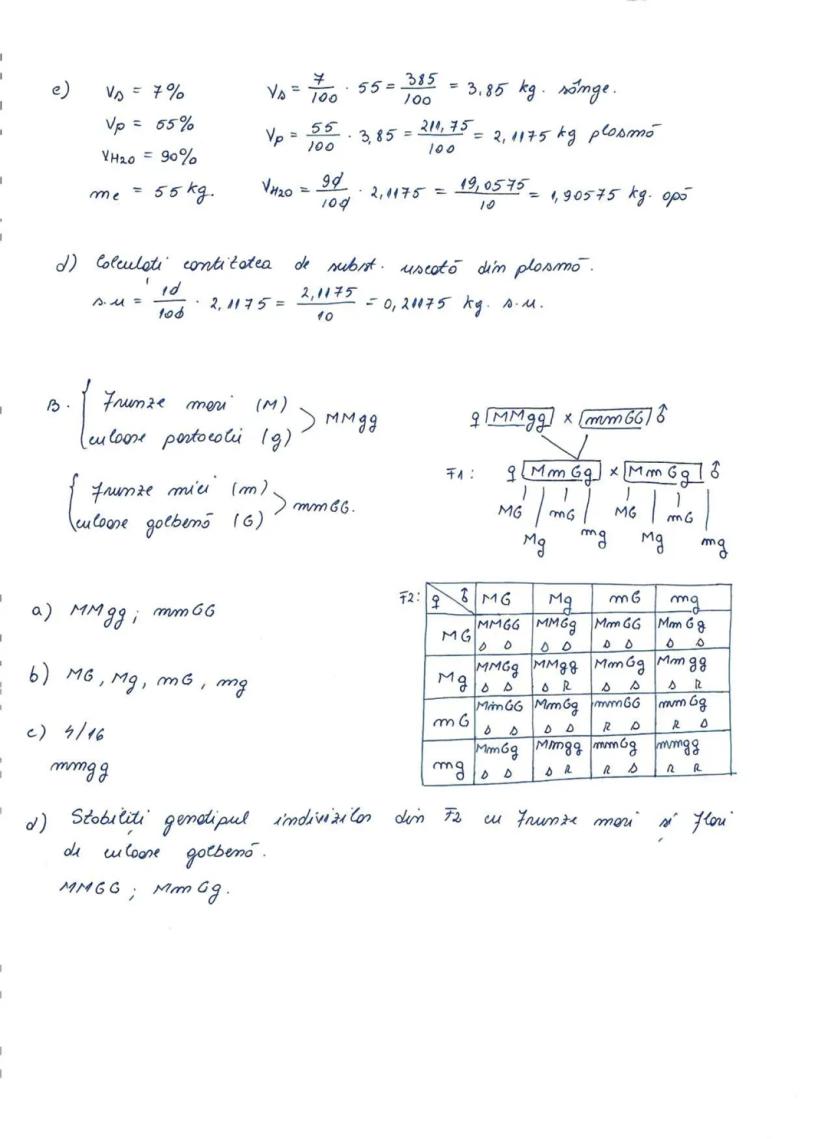 e) Vs = 7% Vs = 7/100 · 55 = 385/100 = 3,85 kg. sânge.
Vp = 55% Vp = 55/100 · 3,85 = 211,75/100 = 2,1175 kg plasmă
VH2O = 90%
me = 55 kg. VH2O = 90/100 · 2,1175 = 19,0575/10 = 1,90575 kg. apă
d) Calculați cantitatea de subst. uscată din plasmă.
s.u = 10/100 · 2,1175 = 2,1175/10 = 0,21175 kg. s.u.
B. { Frunze mari (M)
culoare portocalii (g) > MMgg
{ Frunze mici (m)
culoare galbenă (G) > mmGG.
♀ MMgg × mmGG ♂
F1: ♀ MmGg × MmGg ♂
MG mG MG mG
Mg mg Mg mg
a) MMgg; mmGG
b) MG, Mg, mG, mg
c) 4/16
mmgg
F2: ♀ ♂ MG Mg mG mg
MG MMGG MMGg MmGG MmGg
D D D D D D D D
Mg MMGg MMgg MmGg Mmgg
D D D R D D D R
mG MmGG MmGg mmGG mmGg
D D D D R D R D
mg MmGg Mmgg mmGg mmgg
D D D R R D R R
d) Stabiliți genotipul indivizilor din F2 cu frunze mari și flori
de culoare galbenă.
MMGG; MmGg.